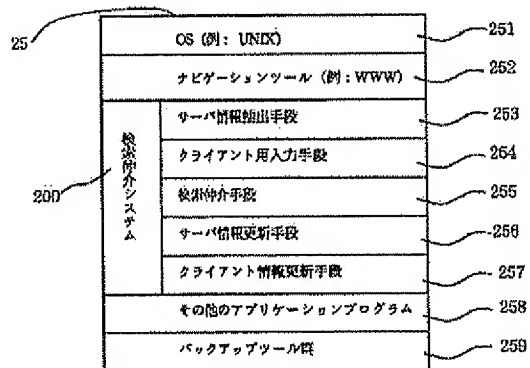 25
OS (例: UNIX)
251
ナビゲーションツール (例:WWW)
252
検索仲介システム
200
サーバ情報抽出手段
253
クライアント用入力手段
254
検索仲介手段
255
サーバ情報更新手段
256
クライアント情報更新手段
257
その他のアプリケーションプログラム
258
バックアップツール群
259